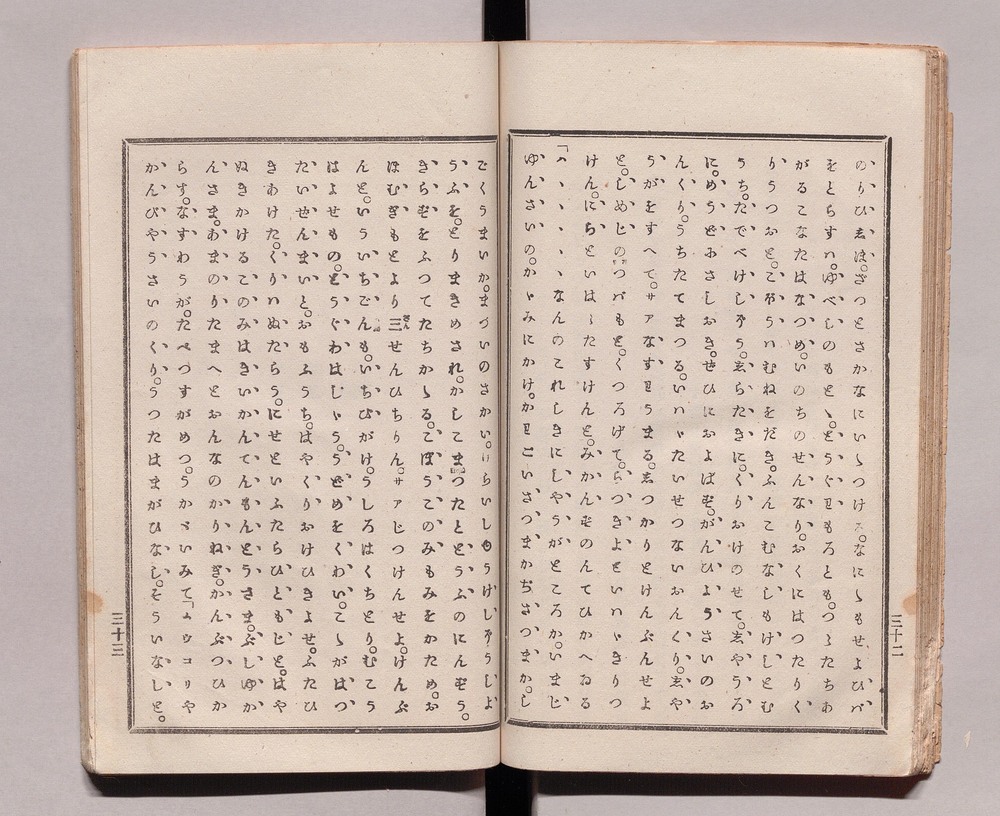 のりひゑは。ざつとさかなにいゝつけ なにゝもせよひバ
をとらすハ。ゆべしのもとゝ。とうぐ もろとも。つゝたちあ
がるこなたはなつめ。いのちのせんなり。おくにはつたりく
りうつおと。こ うハむねをだき。ふんこむなしもけしとむ
うち。たでべけし う。ゑらたきに。くりおけのせて。ゑやうろ
に。めうどふさしおき。ぜひにおよばず。がんひようさいのお
んくり。うちたてまつる。いハゝたいせつないおんくり。ゑや
うがをすへて。サアなす うまる。ゑつかりとけんぶんせよ
と。しめじのつバもと。くつろげて。らつきよといハゝきりつ
けん。にちといはゝたすけんと。みかんずのんてひかへゐる
「ヘヽヽヽヽなんのこれしきにしやうがところか。いまじ
ゆんさいの。かゝみにかけ。か ごいさつまかぢさつまか。し
三十二
でくうまいか。まづいのさかい。けらいしゆうけし うしよ
うふを。とりまきめされ。かしこまつたととうふのにんず う。
きらずをふつてたちかゝる。ごぼうこのみもみをかため。お
ほむぎもとより三せんひちりん。サアじつけんせよ。けんぶ
んと。いういちごんも。いちびがけ。うしろはくちとり。むこう
はよせもの。どうぐわはじゃう。うどめをくわい。こゝがはつ
たいせんまいと。おもふうち。はやくりおけひきよせ。ふたひ
きあけた。くりハぬたらう。にせといふたらひともじと。はや
ぬきかけるこのみはきいかんてんもんとうさま。ぶしゆか
んさま。あまのりたまへとおんなのかりねぎ。かんぶつひか
らす。なすわうが。たべづすがめつ。うかゞいみて「 ウコリや
かんびやうさいのくり。うつたはまがひなし。そういなしと。
三十三